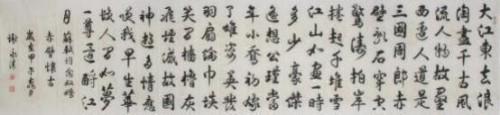 大江東去浪
淘盡千古風
流人物故壘
西邊人道是
三國周郎赤
壁亂石穿空
驚濤拍岸
捲起千堆雪
江山如畫一時
多少豪傑
遙想公瑾當
年小喬初嫁
了雄姿英發
羽扇綸巾談
笑間檣櫓灰
飛煙滅故國
神遊多情應
笑我早生華
髮人生如夢
一尊還酹江
月 蘇軾詞念奴嬌
赤壁懷古
歲在甲午